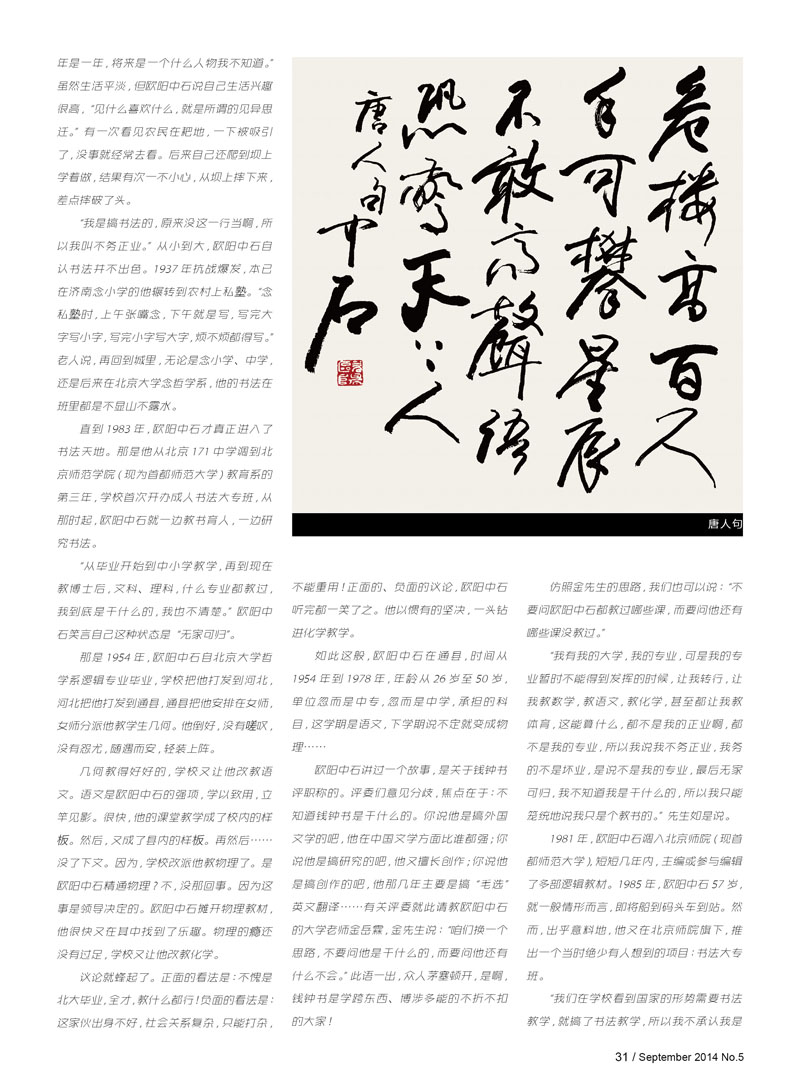 年是一年，将来是一个什么人物我不知道。”
虽然生活平淡，但欧阳中石说自己生活兴趣
很高，“见什么喜欢什么，就是所谓的见异思
迁。”有一次看见农民在耙地，一下被吸引
了，没事就经常去看。后来自己还爬到坝上
学着做，结果有次一不小心，从坝上摔下来，
差点摔破了头。
“我是搞书法的，原来没这一行当啊，所
以我叫不务正业。”从小到大，欧阳中石自
认书法并不出色。1937年抗战爆发，本已
在济南念小学的他辗转到农村上私塾。“念
私塾时，上午张嘴念，下午就是写，写完大
字写小字，写完小字写大字，烦不烦都得写。”
老人说，再回到城里，无论是念小学、中学，
还是后来在北京大学念哲学系，他的书法在
班里都是不显山不露水。
直到1983年，欧阳中石才真正进入了
书法天地。那是他从北京171中学调到北
京师范学院（现为首都师范大学）教育系的
第三年，学校首次开办成人书法大专班，从
那时起，欧阳中石就一边教书育人，一边研
究书法。
“从毕业开始到中小学教学，再到现在
教博士后，文科、理科，什么专业都教过，
我到底是干什么的，我也不清楚。”欧阳中
石笑言自己这种状态是“无家可归”。
那是1954年，欧阳中石自北京大学哲
学系逻辑专业毕业，学校把他打发到河北，
河北把他打发到通县，通县把他安排在女师，
女师分派他教学生几何。他倒好，没有嗟叹，
没有怨尤，随遇而安，轻装上阵。
几何教得好好的，学校又让他改教语
文。语文是欧阳中石的强项，学以致用，立
竿见影。很快，他的课堂教学成了校内的样
板。然后，又成了县内的样板。再然后……
没了下文。因为，学校改派他教物理了。是
欧阳中石精通物理？不，没那回事。因为这
事是领导决定的。欧阳中石摊开物理教材，
他很快又在其中找到了乐趣。物理的瘾还
没有过足，学校又让他改教化学。
议论就蜂起了。正面的看法是：不愧是
北大毕业，全才，教什么都行！负面的看法是：
这家伙出身不好，社会关系复杂，只能打杂，
危楼高百人
手可攀星辰
不敢高聲语
恐惊天〻人
唐人句中石
唐人句
不能重用！正面的、负面的议论，欧阳中石
听完都一笑了之。他以惯有的坚决，一头钻
进化学教学。
如此这般，欧阳中石在通县，时间从
1954年到1978年，年龄从26岁至50岁，
单位忽而是中专，忽而是中学，承担的科
目，这学期是语文，下学期说不定就变成物
理……
欧阳中石讲过一个故事，是关于钱钟书
评职称的。评委们意见分歧，焦点在于：不
知道钱钟书是干什么的。你说他是搞外国
文学的吧，他在中国文学方面比谁都强；你
说他是搞研究的吧，他又擅长创作；你说他
是搞创作的吧，他那几年主要是搞“毛选”
英文翻译……有关评委就此请教欧阳中石
的大学老师金岳霖，金先生说：“咱们换一个
思路，不要问他是干什么的，而要问他还有
什么不会。”此语一出，众人茅塞顿开，是啊，
钱钟书是学跨东西、博涉多能的不折不扣
的大家！
仿照金先生的思路，我们也可以说：“不
要问欧阳中石都教过哪些课，而要问他还有
哪些课没教过。”
“我有我的大学，我的专业，可是我的专
业暂时不能得到发挥的时候，让我转行，让
我教数学，教语文，教化学，甚至都让我教
体育，这能算什么，都不是我的正业啊，都
不是我的专业，所以我说我不务正业，我务
的不是坏业，是说不是我的专业，最后无家
可归，我不知道我是干什么的，所以我只能
笼统地说我只是个教书的。”先生如是说。
1981年，欧阳中石调入北京师院（现首
都师范大学），短短几年内，主编或参与编辑
了多部逻辑教材。1985年，欧阳中石57岁，
就一般情形而言，即将船到码头车到站。然
而，出乎意料地，他又在北京师院旗下，推
出一个当时绝少有人想到的项目：书法大专
班。
“我们在学校看到国家的形势需要书法
教学，就搞了书法教学，所以我不承认我是
31 / September 2014 No.5